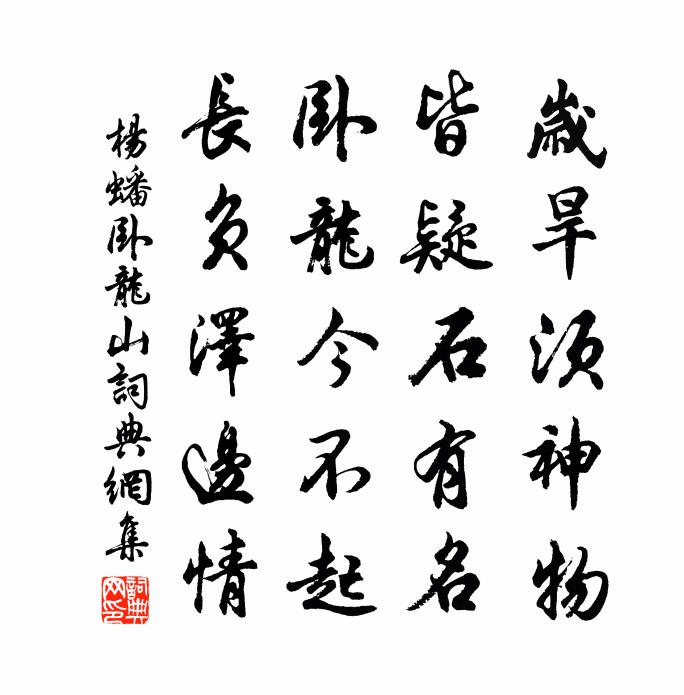 歲旱須神物
皆疑石有名
卧龍今不起
長負澤邊情
楊蟠卧龍山詞典網集
詞典
网印